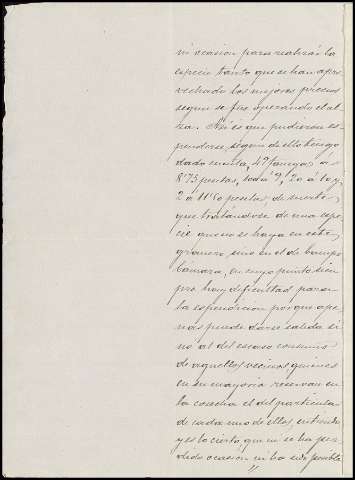 ni ocasion para realizar la
especie tanto que se han apro-
vechado los mejores precios
segun se fue operando el al-
za. Asi es que pudieron es-
penderse, segun de ello tengo
dado cuenta, 47 fanegas a
8'75 pesetas, todo 9, 20 a 10 y
2 a 11'50 pesetas; de suerte
que tratandose de una espe-
cie que no se haya en este
granero, sino en el de Campo
Cámara, en cuyo punto siem-
pre hay dificultad para
la espendicion porque ape-
nas puede darse salida si
no al del escaso consumo
de aquellos vecinos quienes
en su mayoria reservan en
la cosecha el del particular
de cada uno de ellos, entiendo
y es lo cierto, que ni se ha per-
dido ocasión ni ha sido posible